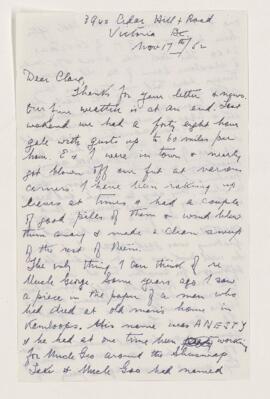 3940 Cedar Hill X Road
Victoria BC
Nov 17th/62
Dear Clare,
Thanks for your letter & news.
Our fine weather is at an end. Last
weekend we had a forty eight hour
gale with gusts up to 60 miles per
hour. E & I were in town & nearly
got blown off our feet at various
corners. I have been raking up
leaves at times & had a couple
of good piles of them & wind blew
them away & made a clean sweep
of the rest of them.
The only thing I can think of re
Uncle George. Some years ago I saw
a piece in the paper of a man who
had died at old mans home in
Kamloops. His name was ANESTY
& he had at one time been working
for Uncle Geo around the Shuswap
Lake & Uncle Geo had named